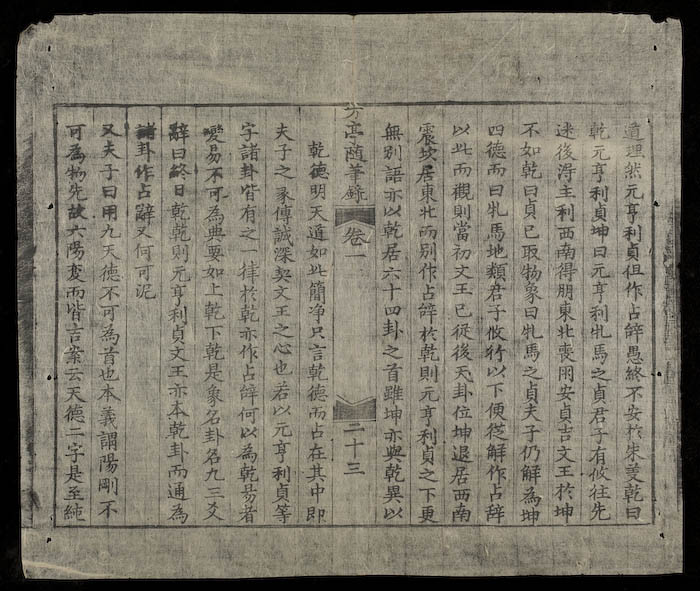 道理然元亨利貞但作占辝愚終不安於朱羙乾曰
乾元亨利貞坤曰元亨利牝馬之貞君子有攸往先
迷後得主利西南得朋東北喪朋安貞吉文王於坤
不如乾曰貞已取物象曰牝馬之貞夫子仍解為坤
四德而曰牝馬地類君子攸行以下便從解作占辝
以此而觀則當初文王已從後天卦位坤退居西南
震坎居東北而别作占辝於乾則元亨利貞之下更
無別語亦以乾居六十四卦之首雖坤亦與乾異以
亭随筆錄
卷一
二十三
乾德明天道如此簡净只言乾德而占在其中即
夫子之彖傳誠深契文王之心也若以元亨利貞等
字諸卦皆有之一律於乾亦作占辝何以為乾易者
變易不可為典要如上乾下乾是象名卦名九三爻
辭曰終日乾乾則元亨利貞文王亦本乾卦而通為
諸卦作占辭又何可泥
又夫子曰用九天德不可為首也本義謂陽剛不
可為物先故六陽変而皆吉案云天德二字是至純